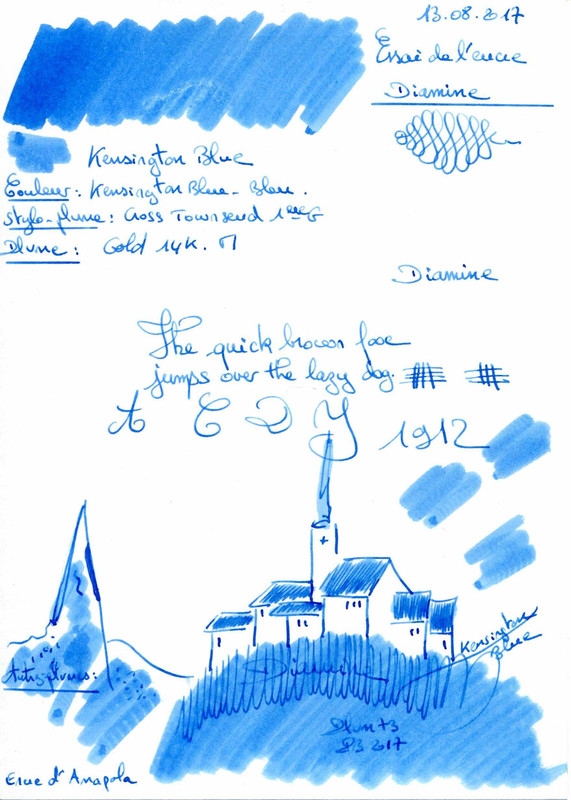 13.08.2017
Essai de l'encre
Diamine
Kensington Blue
Couleur : Kensington Blue - Bleu.
Stylo-plume : Cross Townsend
Plume : Gold 14K. M
Diamine
The quick brown fox
jumps over the lazy dog.
A C D Y 1912
Kensington
Blue
Diamine
Autres plumes :
2017
Encre d'Anapola